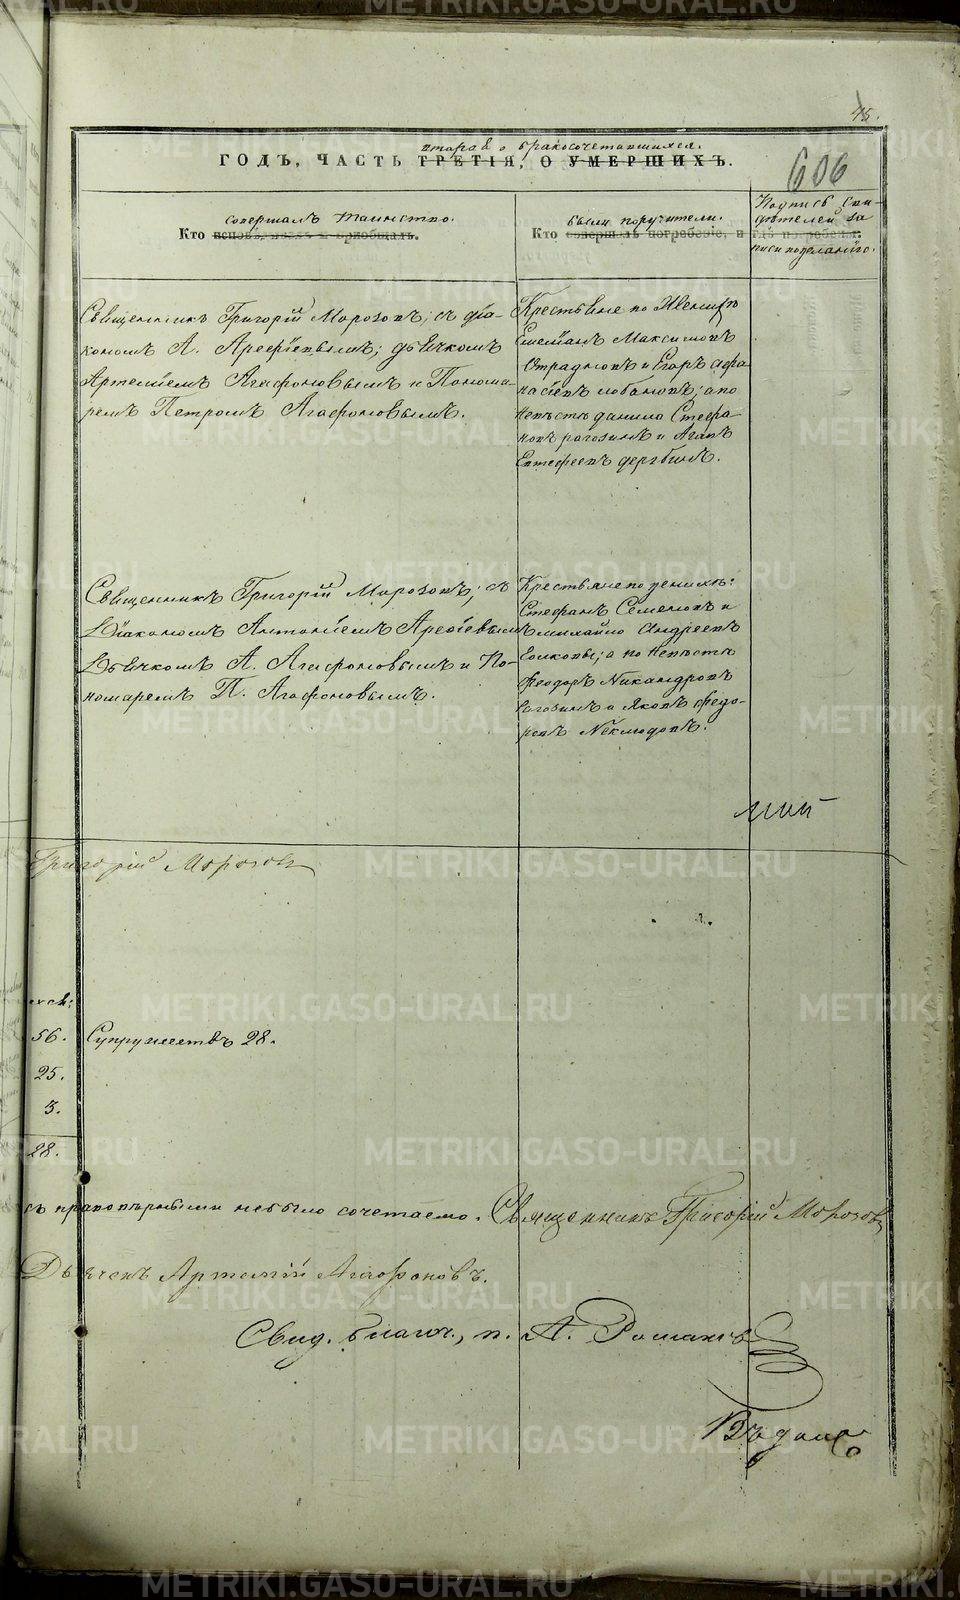 45.
606
вторая о бракосочетавшихся.
ГОДЪ, ЧАСТЬ ТРЕТІЯ, О УМЕРШИХЪ.
совершалъ таинство.
Кто исповѣдывалъ и приобщалъ.
были поручители.
Кто совершалъ погребеніе, и гдѣ погребены.
Подпись сви-
дѣтелей за
писи по желанію.
Священникъ Григорій Морозовъ; съ діа-
кономъ А. Арефіевымъ; дьячкомъ
Артеміемъ Агафоновымъ и Понома-
ремъ Петромъ Агафоновымъ.
Крестьяне по Женихѣ
Максимовъ
Отрадновъ и Егоръ Афа
насіевъ Лобановъ; а по
Невѣстѣ Данило Стефа-
новъ Рагозинъ и Агапъ
Священникъ Григорій Морозовъ; съ
Діакономъ Антоніемъ Арефіевымъ
Дьячкомъ А. Агафоновымъ и По-
номаремъ П. Агафоновымъ.
Крестьяне по женихѣ:
Стефанъ Семеновъ и
Михайло Андреевъ
а по Невѣстѣ
Феодоръ Никандровъ
Рагозинъ и Яковъ Федо-
ровъ Неклюдовъ.
Григорій Морозовъ
56. Супружествъ 28.
25.
3.
28.
съ православными небыло сочетаемо. Священникъ Григорій Морозовъ
Дьячекъ Артемій Агафоновъ.
Свид. благоч., п. А. Романовъ
METRIKI.GASO-URAL.RU